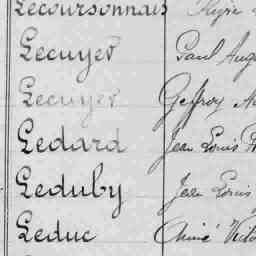 Lecoursonnais
Lecuyer Paul Aug
Lecuyer Geffroy
Ledard Jean Louis
Leduby Jean Louis
Leduc Aimé Victo